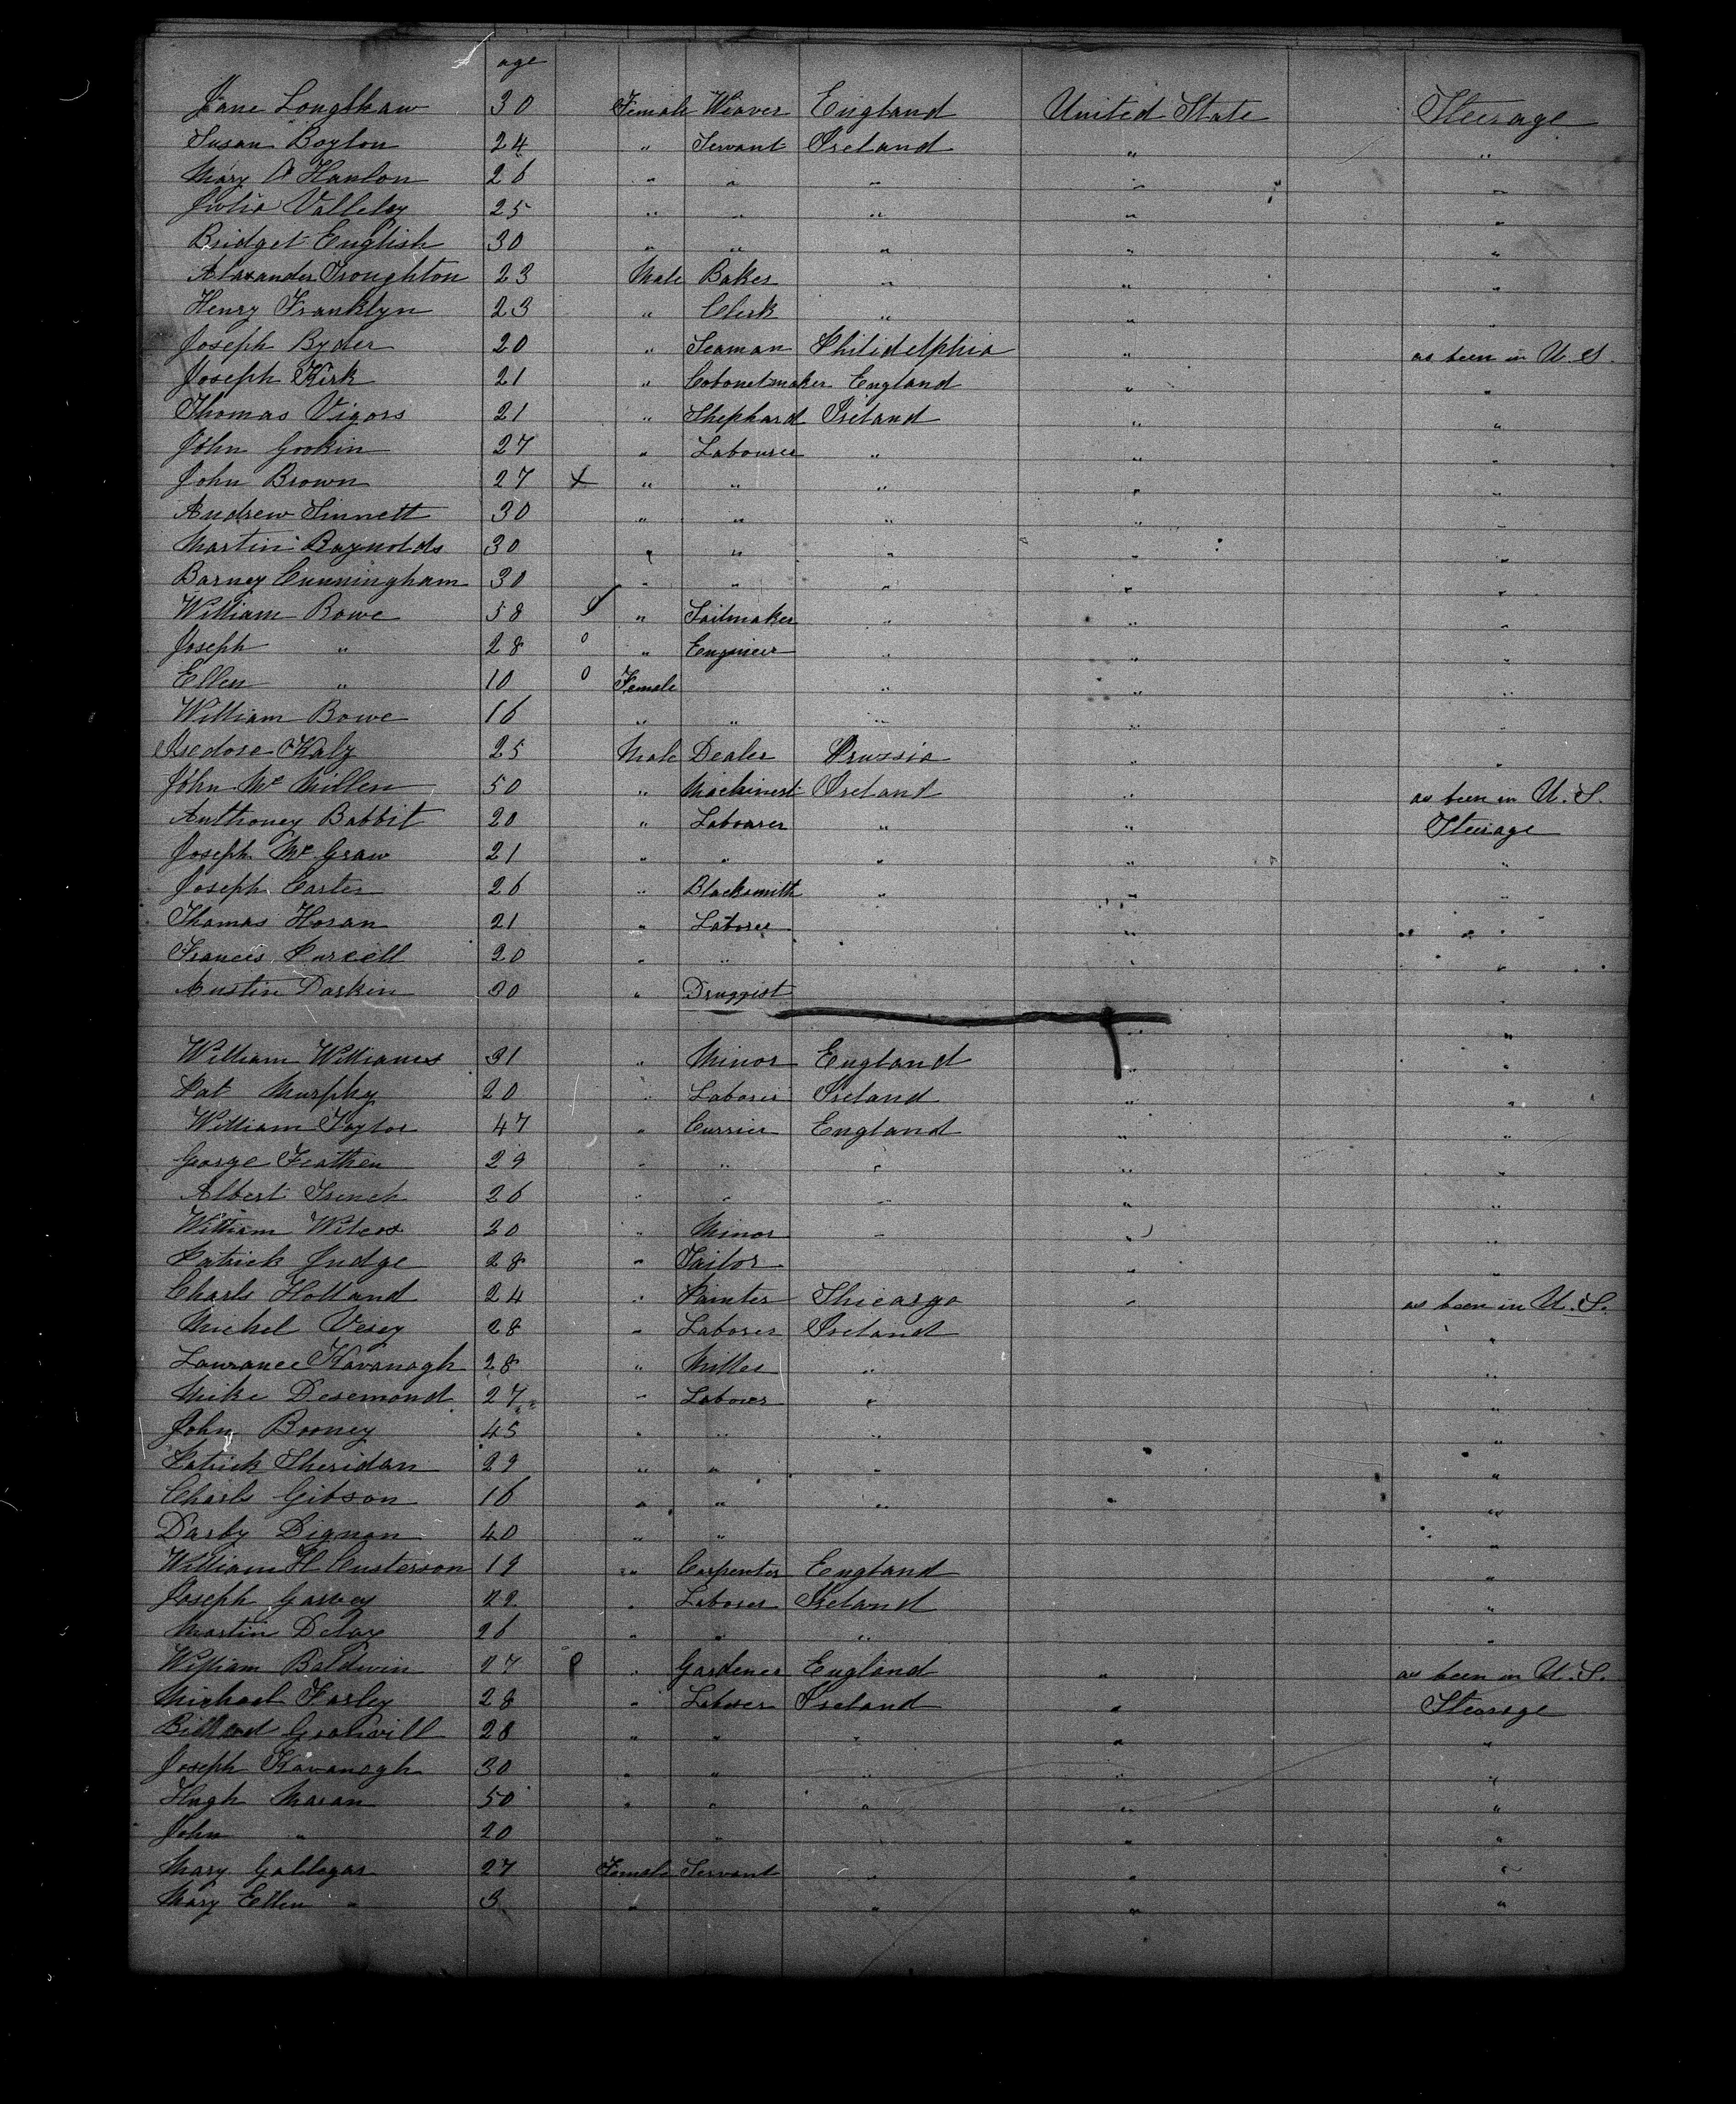 age
Jane Longshaw 30 Female Weaver England United State Steerage
Susan Boylon 24 " Servant Ireland " "
Mary O Hanlon 26 " " " " "
Julia Valleley 25 " " " " "
Bridget English 30 " " " " "
Alaxander Troughton 23 Male Baker " " "
Henry Franklyn 23 " Clerk " " "
Joseph Ryder 20 " Seaman Philidelphia " as been in U.S.
Joseph Kirk 21 " Cabonetmaker England " "
Thomas Vigors 21 " Shephard Ireland " "
John Gookin 27 " Labourer " " "
John Brown 27 x " " " " "
Andrew Sinnett 30 " " " " "
Martin Raynolds 30 " " " " "
Barney Cunningham 30 " " " " "
William Rowe 58 " Sailmaker " " "
Joseph " 28 o " Engineer " " "
Ellen " 10 o Female " " "
William Bowe 16 " " " " "
Isedore Kaly 25 Male Dealer Prussia " "
John Mc Millen 50 " Machinest Ireland " as been in U.S.
Anthoney Babbit 20 " Labourer " " Steerage
Joseph Mc Graw 21 " " " " "
Joseph Carter 26 " Blacksmith " " "
Thomas Horan 21 " Laborer " "
Francis Purcell 20 " " " "
Austin Darken 30 " Druggist "
" "
William Williams 31 " Minor England " "
Pat Murphy 20 " Laborer Ireland " "
William Taylor 47 " Currier England " "
George Feathen 29 " " " " "
Albert French 26 " " " " "
William Wilcox 20 " Minor " " "
Patrick Judge 28 " Tailor " "
Charls Holland 24 " Painter Shicargo " as been in U.S.
Michel Vesey 28 " Laborer Ireland "
Laurance Kavanagh 28 " Miller " "
Mike Desemond 27 " Laborer " "
John Rooney 45 " " " "
Patrick Sheridan 29 " " " "
Charls Gibson 16 " " " " "
Darby Dignan 40 " " "
William H Custerson 19 " Carpenter England "
Joseph Garvey 22 " Laborer Ireland "
Martin Delay 26 " " " "
William Baldwin 27 " Gardener England " as been in U.S.
Michael Farley 28 " Laborer Ireland " Stearage
28 " " " " "
Joseph Kavanagh 30 " " " " "
Hugh Maran 50 " " " " "
John " 20 " " "
Mary Gallagar 27 Female Servant " " "
Mary Ellen " 3 " " " "